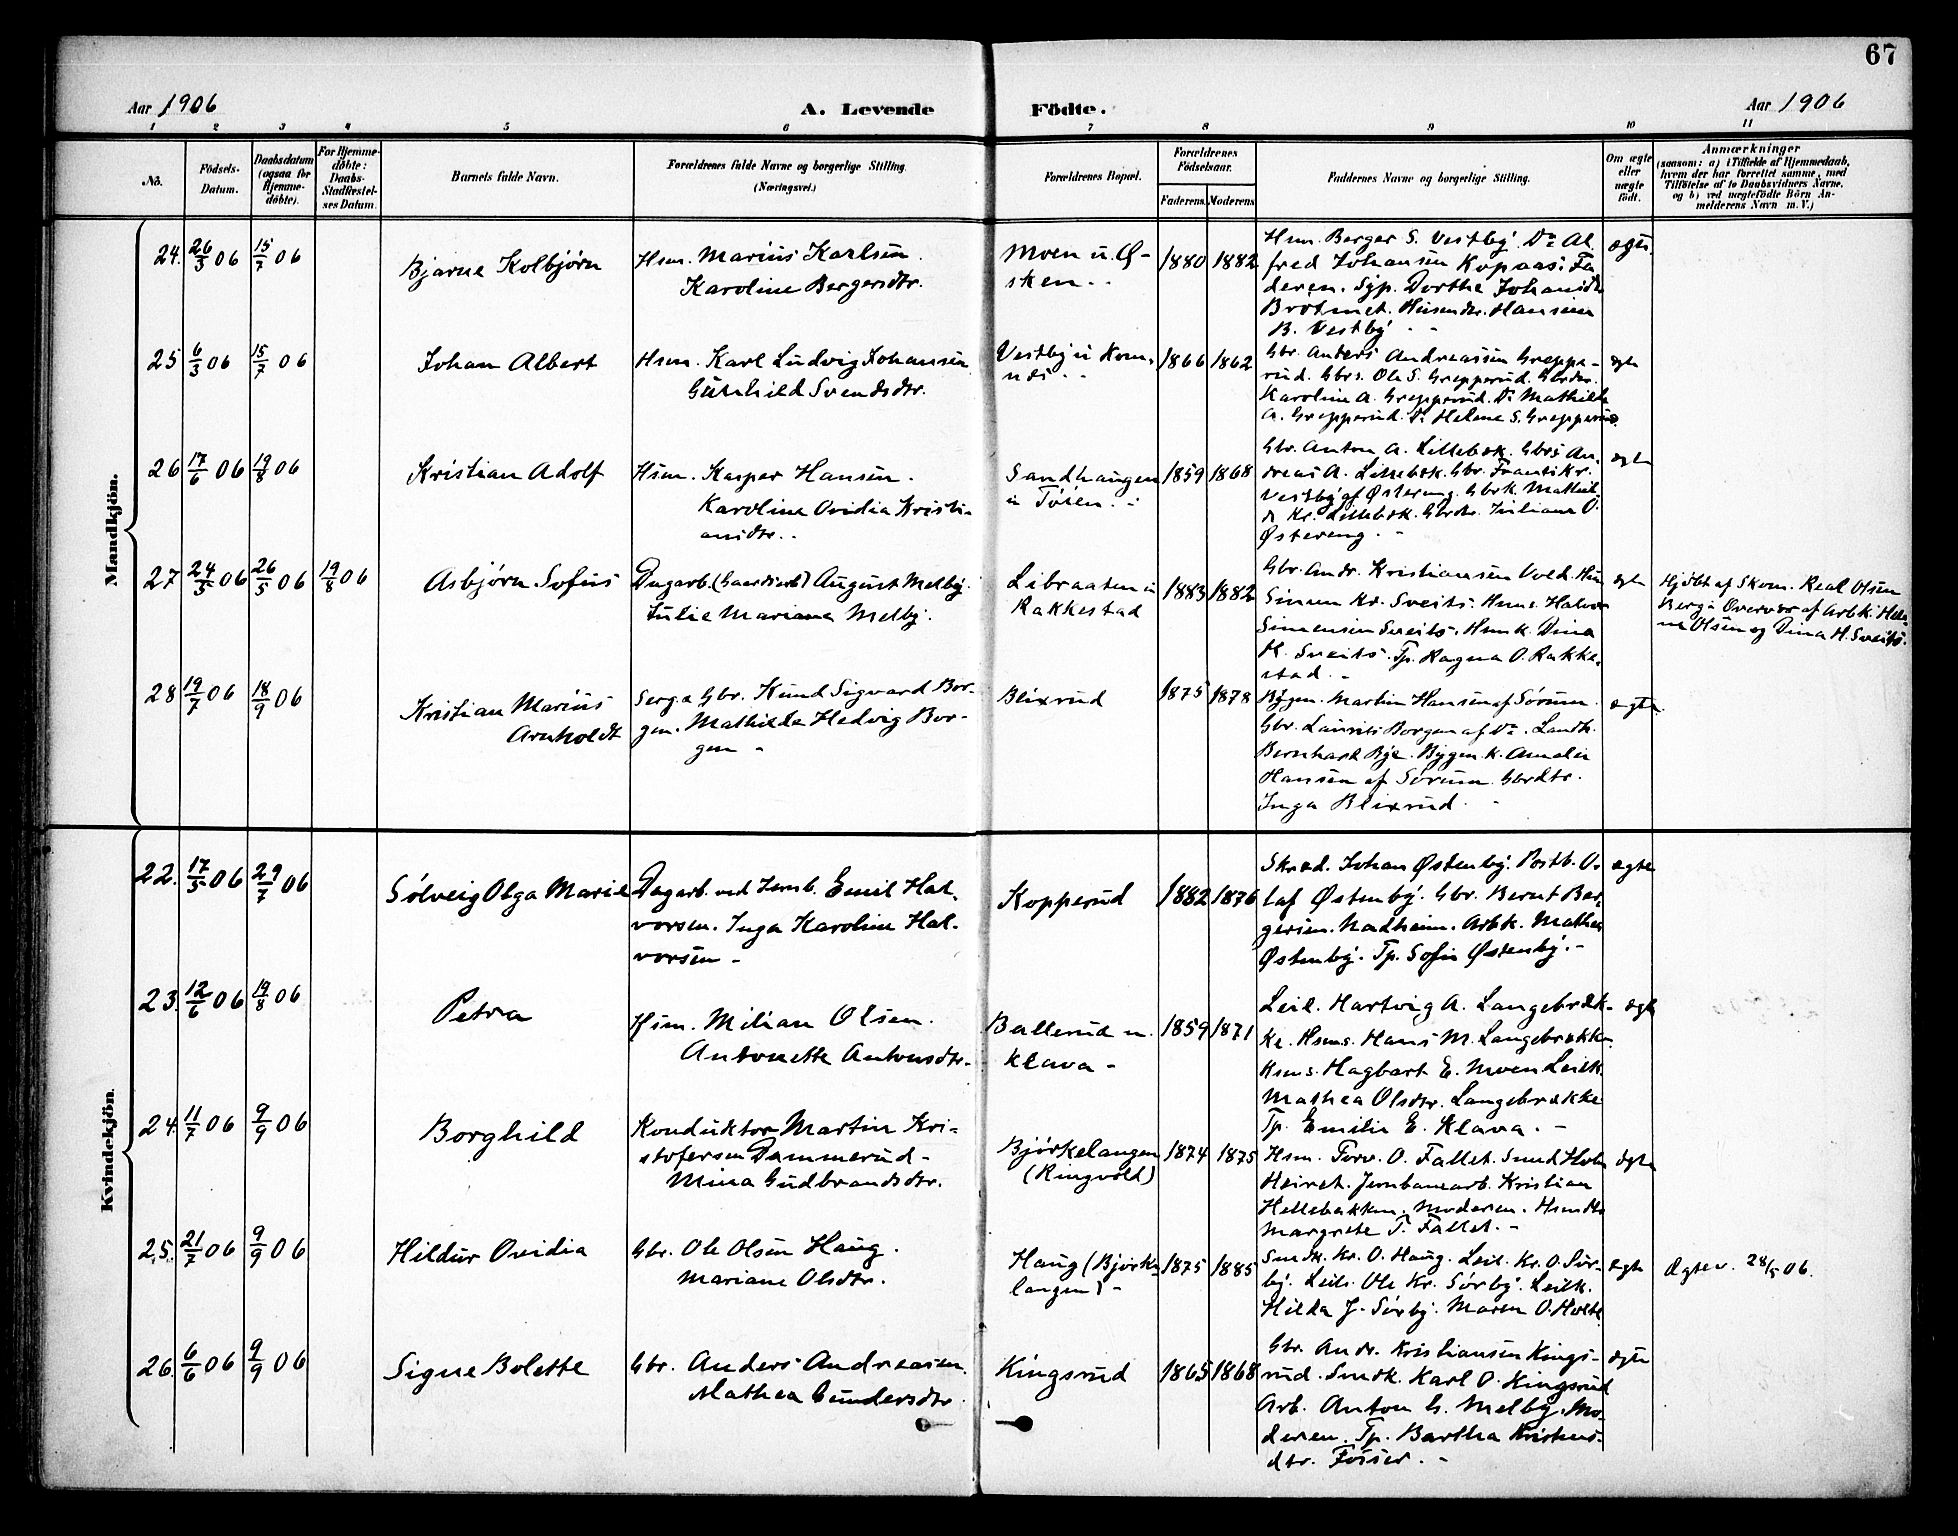 67
Aar 1906
A. Levende
Födte.
Aar 1906
1 2 3 4 5 6 7 8 9 10 11
No.
Födsels-
Datum.
Daabsdatum
(ogsaa for
Hjemme-
döbte).
For Hjemme-
döbte:
Daabs-
Stadfæstel-
ses Datum.
Barnets fulde Navn.
Forældrenes fulde Navne og borgerlige Stilling.
(Næringsvei.)
Forældrenes Bopæl.
Forældrenes
Födselsaar.
Faderens. Moderens.
Faddernes Navne og borgerlige Stilling.
Om ægte
eller
uægte
födt.
Anmærkninger
(saasom: a) i Tilfælde af Hjemmedaab,
hvem der har forrettet samme, med
Tilföielse af to Daabsvidners Navne,
og b) ved uægtefödte Börn An-
melderens Navn m. V.)
Mandkjön.
24. 26/3 06 15/7 06
Bjarne Kolbjørn
Hsm. Marius Karlsen.
Karoline Bergersdtr.
Moen u. Ø-
sken.
1880 1882
Hsm. Berger S. Vestby. Do Al
fred Johansen Kopaas. Fa
deren. Sgp. Dorthe Johansdtr
Brøtmet. Husmdtr. Hansine
B. Vestby.
ægte.
25 6/3 06 15/7 06
Johan Albert
Hsm. Karl Ludvig Johansen
Gunhild Svendsdtr.
Vestby u
1866 1862
Gbr. Anders Andreassen Greppe-
rud. Gbrs. Ole S. Grepperud. Gbrdtr.
Karoline A. Grepperud. Do Mathilde
A. Grepperud. Do Helene S. Grepperud.
ægte
26 17/6 06 19/8 06
Kristian Adolf
Hsm. Kasper Hansen.
Karoline Ovidia Kristi-
ansdtr.
Sandhaugen
u Töien.
1859 1868
Gbr. Anton A. Lillebæk. Gbrs An-
dreas A. Lillebæk. Gbr. Frants Kr.
Vestby af Østereng. Gbrk. Mathil-
de Kr. Lillebæk. Gbrdtr. Juliane O.
Østereng.
ægte
27 24/5 06 26/5 06 19/8 06
Asbjørn Sofus
Dagarb. (Gaardsarb) August Melby.
Julie Mariane Melby.
Libraaten u
Rakkestad
1883 1882
Gbr. Andr. Kristiansen Vold. Hsm
Simen Kr. Sveits. Hsms. Halvor
Simensen Sveits. Hsmk. Dina
H. Sveits. Tp. Ragna O. Rakke-
stad.
ægte
Hjdbt af Skom. Real Olsen
Berg. Overvær af Arbk. Hele-
ne Olsen og Dina H. Sveits.
28 19/7 06 18/9 06
Kristian Marius
Arnholdt
Serg. & Gbr. Knud Sigvard Bor-
gen. Mathilde Hedvig Bor-
gen
Blixrud
1875 1878
Bygm. Martin Hansen af Sørum.
Gbr. Laurits Borgen af Do. Landh.
Bernhard Bye. Bygm.k. Amalie
Hansen af Sørum. Gbrdtr.
Inga Blixrud.
ægte
Kvindekjön.
22. 17/5 06 29/7 06
Sölveig Olga Marie
Dagarb. ved Jernb. Emil Hal-
vorsen. Inga Karoline Hal-
vorsen
Kopperud
1882 1876
Skræd. Johan Østenby. Postb. O-
laf Østenby. Gbr. Bernt Ber-
gersen. Nadheim. Arbk. Mathea
Østenby. Tp. Sofie Østenby.
ægte
23. 12/6 06 19/8 06
Petra
Hsm. Milian Olsen.
Antonette Antonsdtr.
Ballerud u.
Klava
1859 1871
Leil. Hartvig A. Langebræk-
ke. Hsms. Hans M. Langebrække.
Hsms. Hagbart E. Moen. Leilk.
Mathea Olsdtr. Langebrække
Tp. Emilie E. Klava.
ægte
24. 11/7 06 9/9 06
Borghild
Konduktør Martin Kri-
stofersen Dammerud
Mina Gudbrandsdtr.
Bjørkelangen
(Ringvold)
1874 1875
Hsm. Torv. O. Fallet. Smed
Jernbanearb. Kristian
Hellebakken. Moderen. Hsmdtr
Margrete T. Fallet.
Ægte
25. 21/7 06 9/9 06
Hildur Ovidia
Gbr. Ole Olsen Haug.
Mariane Olsdtr.
Haug (Bjørke-
langen)
1875 1885
Smdk. Kr. O. Haug. Leil. Kr. O. Sør-
by. Leils. Ole Kr. Sørby. Leilk.
Hilda J. Sørby. Maren O. Holte
ægte
Ægtev. 28/5 06.
26. 6/6 06 9/9 06
Signe Bolette
Gbr. Anders Andreasen
Mathea Gundersdtr.
Kingsrud
1865 1868
Gbr. Andr. Kristiansen Kings-
rud. Smdk. Karl O. Kingsrud
Arb. Anton G. Melby. Mo-
deren. Tp. Barthea Kristens-
dtr. Fosser.
ægte